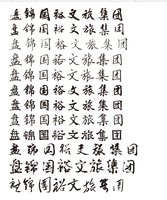 盘锦国裕文旅集团
盘锦国裕文旅集团
盘锦国裕文旅集团
盘锦国裕文旅集团
盘锦国裕文旅集团
盘锦国裕文旅集团
盘锦国裕文旅集团
盘锦国裕文旅集团
盘锦国裕文旅集团
盘锦国裕文旅集团
盘锦国裕文旅集团